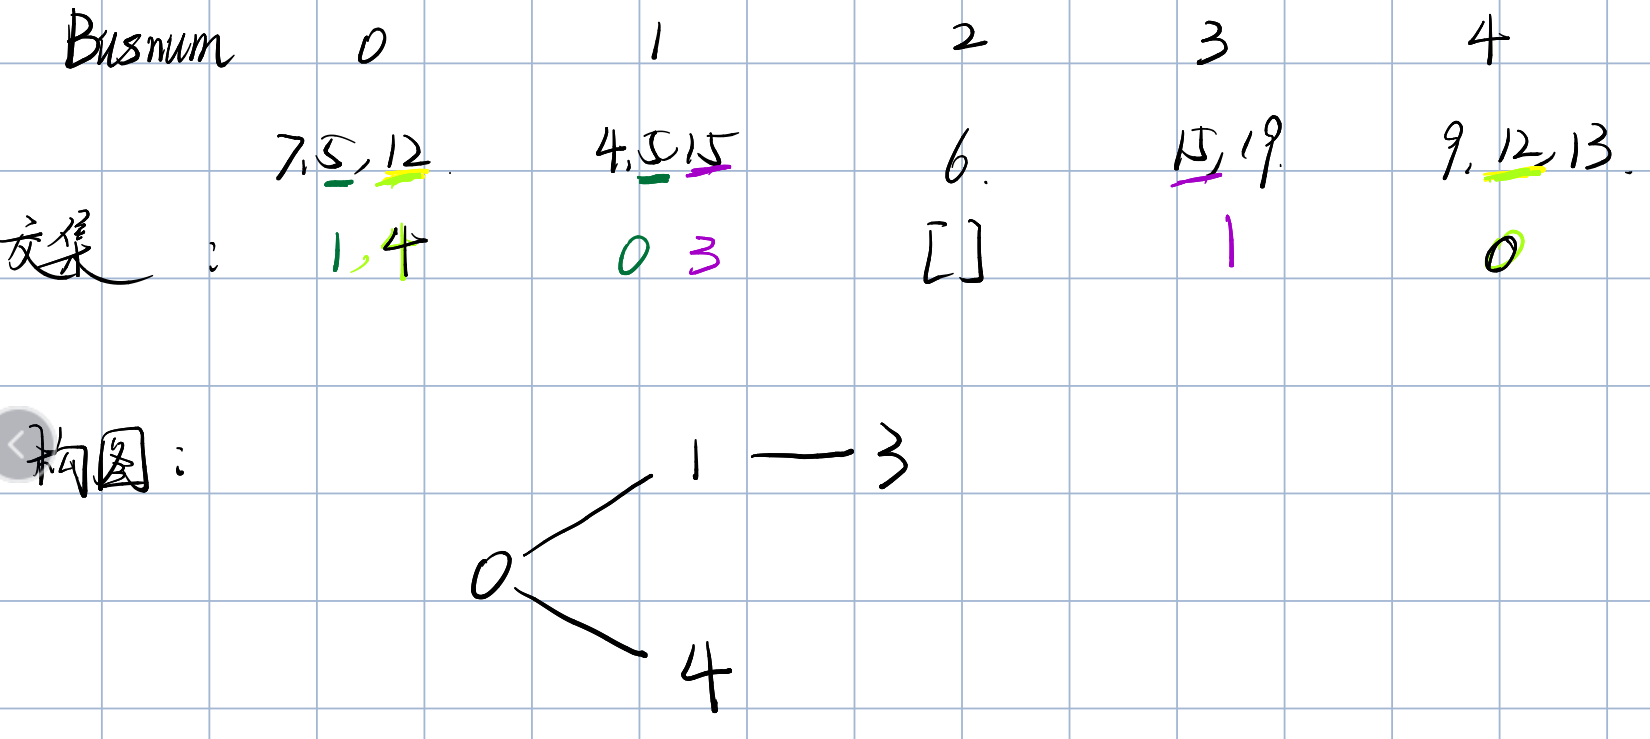 Busnum 0 1 2 3 4
7,5,12. 4,5,15 6. 15,19. 9,12,13.
交集: 1,4 0 3 [] 1 0
构图: 1 — 3
0
4